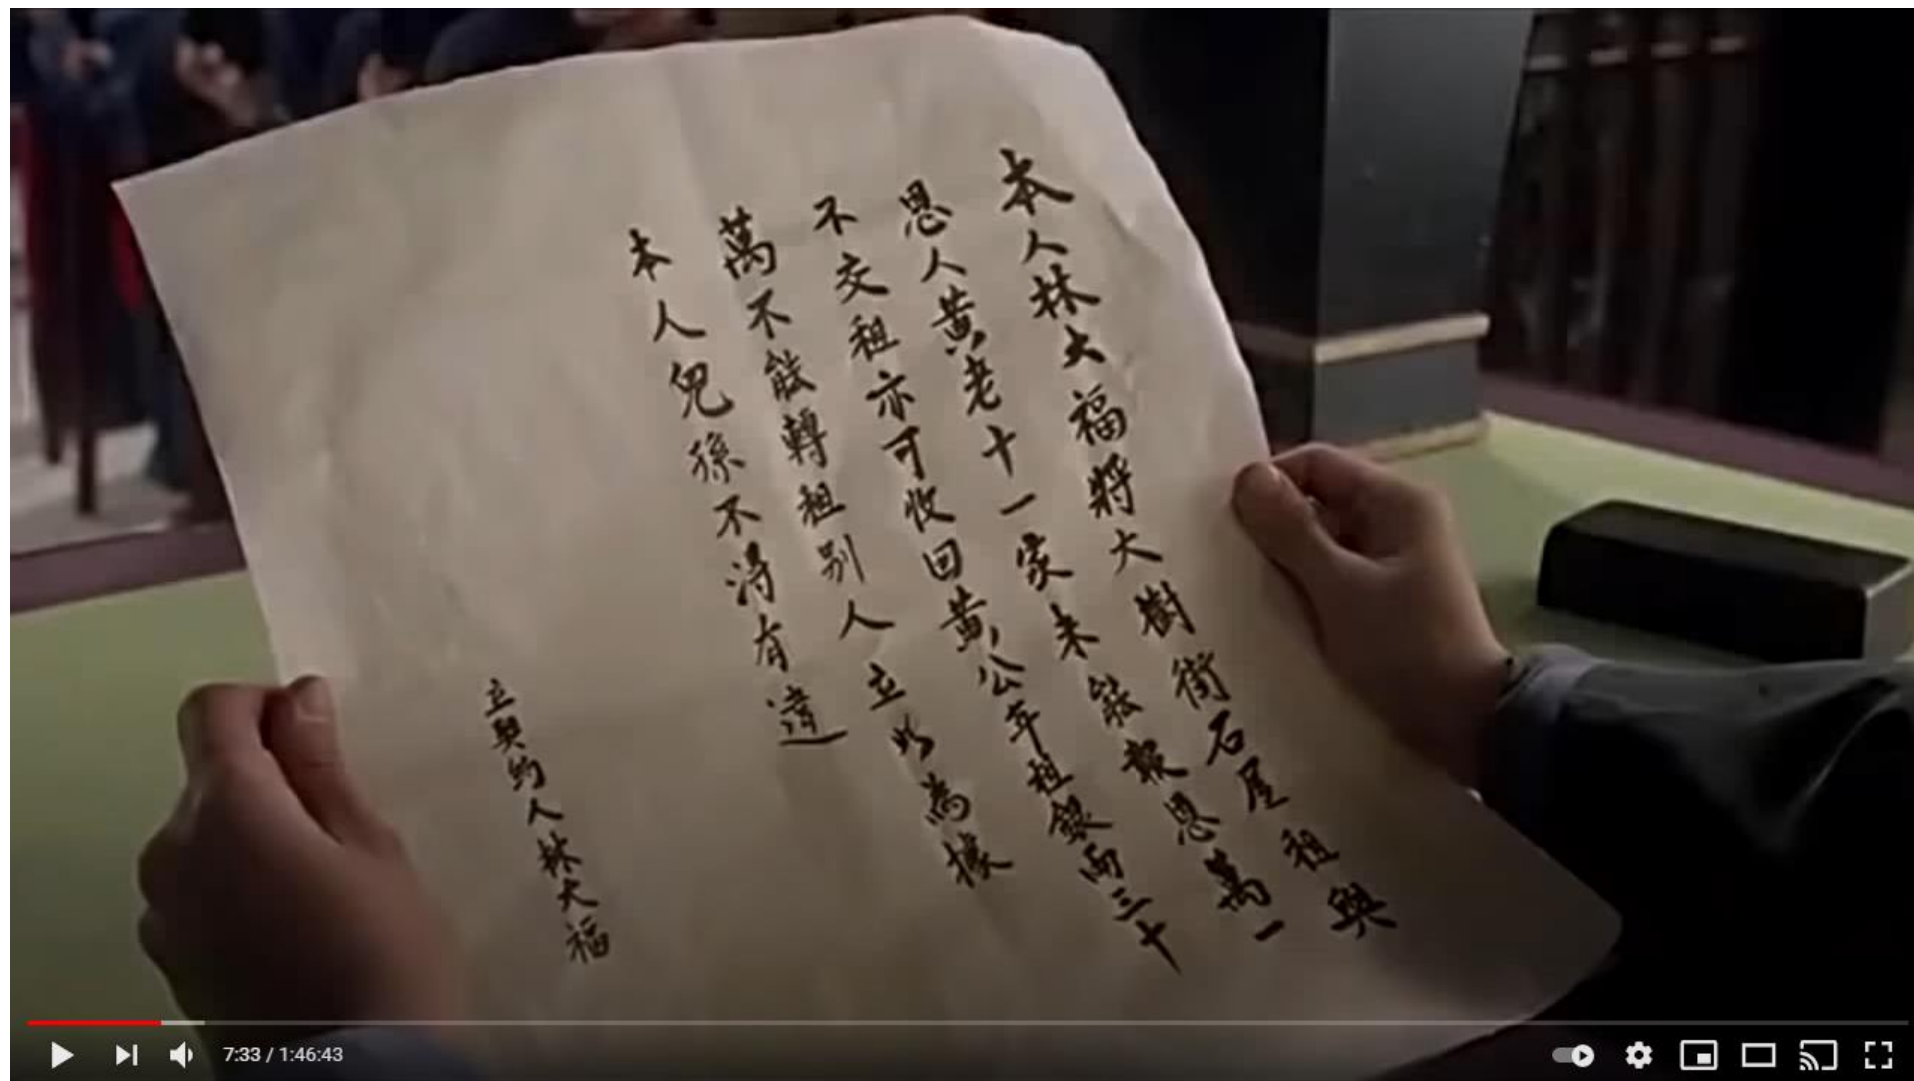 本人林大福將大樹街石屋租與
恩人黃老十一家未能報恩萬一
不交租亦可收回黃公年租銀兩三十
萬不能轉租别人立此為據
本人兒孫不得有違
立契約人林大福
7:33 / 1:46:43